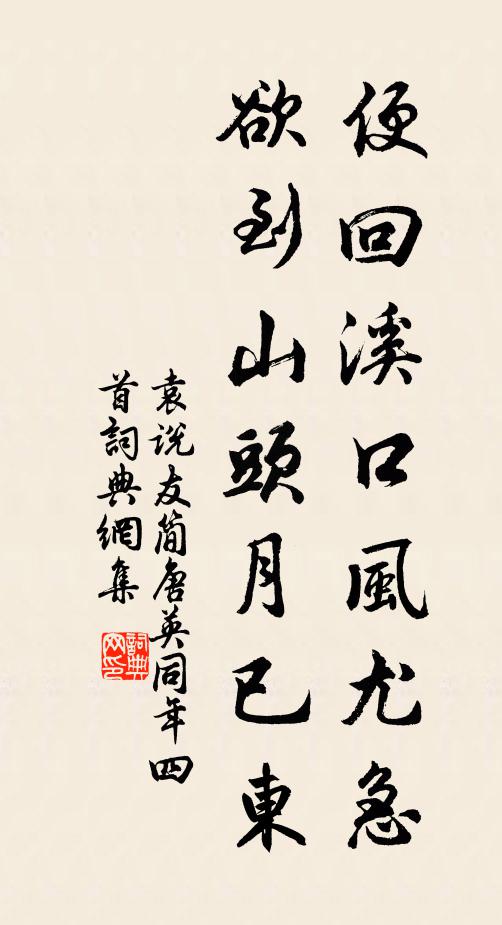 便回溪口風尤急
欲到山頭月已東
袁説友簡唐英同年四
首詞典網集
詞典
网印